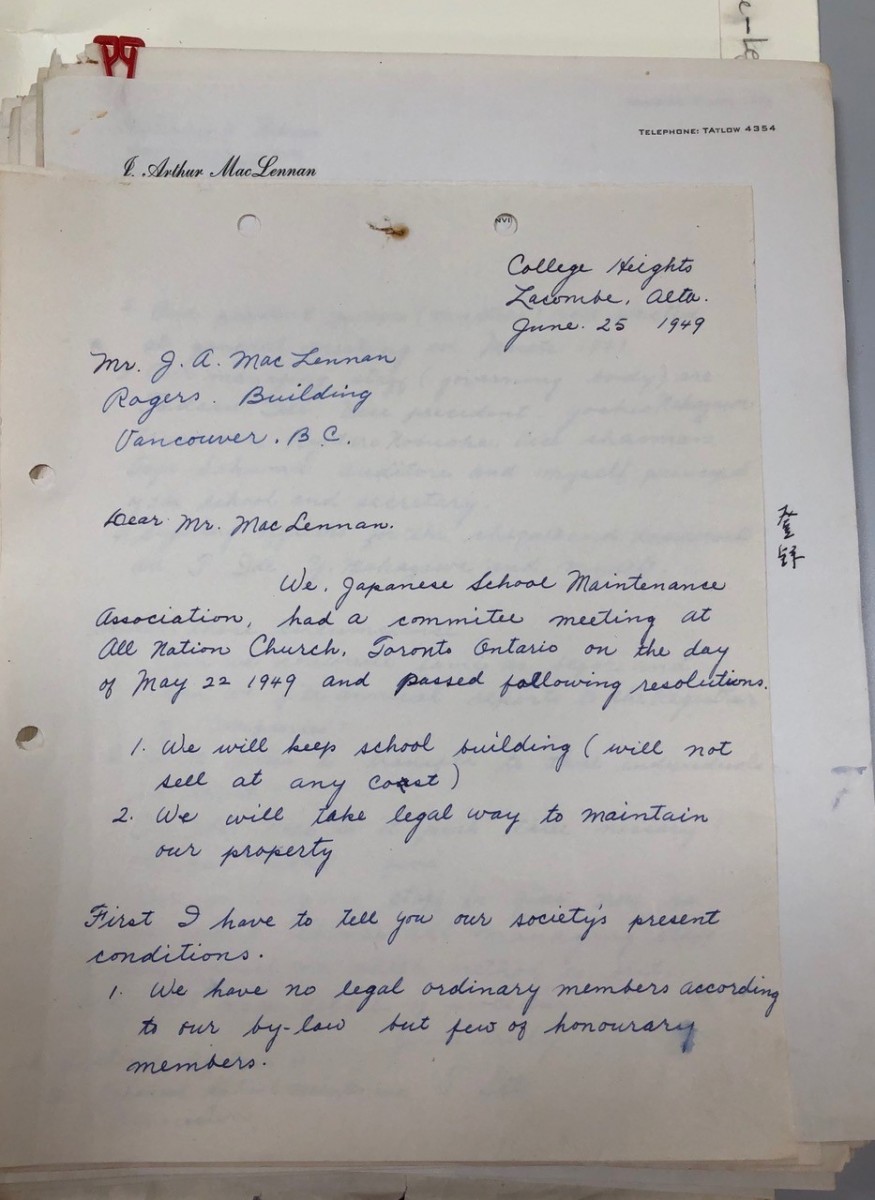 TELEPHONE: TAYLOW 4354
J. Arthur MacLennan
College Heights
Lacombe, Alta.
June. 25 1949
Mr. J. A. Mac Lennan
Rogers. Building
Vancouver. B.C.
Dear Mr. Mac Lennan.
We, Japanese School Maintenance
Association, had a commitee meeting at
All Nation Church, Toronto Ontario on the day
of May 22 1949 and passed following resolutions.
1. We will keep school building (will not
sell at any cost)
2. We will take legal way to maintain
our property
First I have to tell you our society's present
conditions.
1. We have no legal ordinary members according
to our by-law but few of honourary
members.